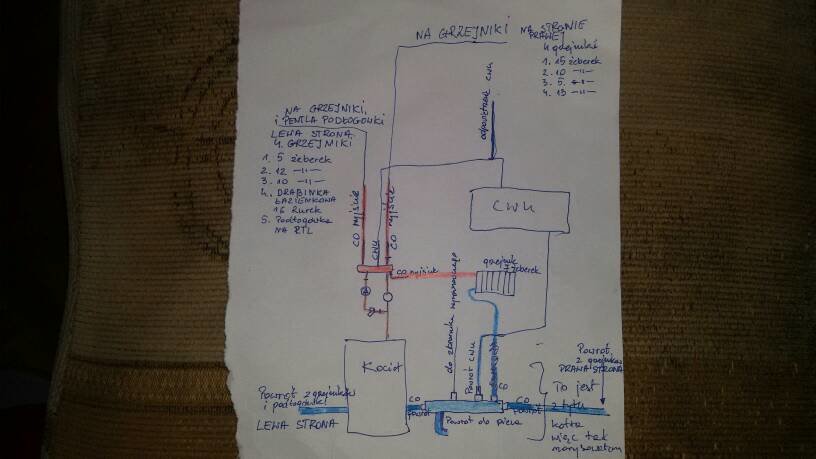 NA GRZEJNIKI
NA STRONIE
PRAWEJ
4 grzejniki
1. 15 żeberek
2. 10 -11-
3. 5. -11-
4. 13 -11-
odpowietrznik CWU
NA GRZEJNIKI,
i PENTLA PODŁOGÓWKI
LEWA STRONA
4. GRZEJNIKI
1. 5 żeberek
2. 12 -11-
3. 10 -11-
4. DRABINKA
ŁAZIENKOWA
16 Rurek
5. Podłogówka
NA RTL
CO wyjście
CWU
CO wyjście
CWU
CO wyjście
grzejnik
7 żeberek
do zbiornika wyrównawczego
Kocioł
Powrót CWU
CO
Powrót z grzejników
i podłogówki
LEWA STRONA
CO
Powrót
CO
Powrót
Powrót do pieca
Powrót
z grzejników
PRAWA STRONA
To jest
z tyłu
kotła
więc tak
narysowałem